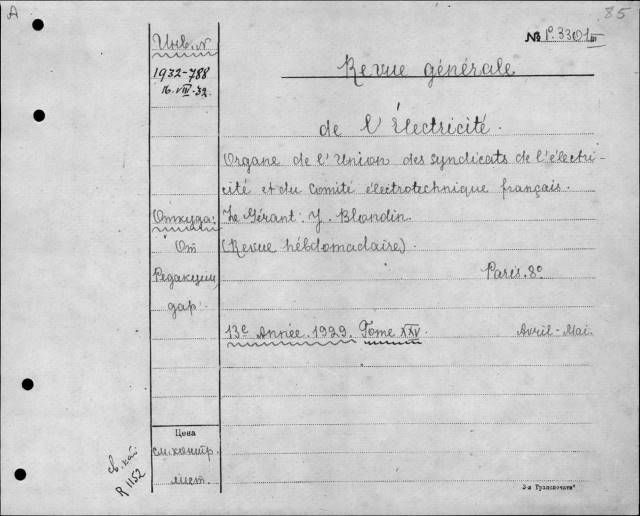 A
85
№ P.3301 III
Инв. №
1932-788
16.VIII.32.
Revue générale
de l'Électricité.
Organe de l'Union des syndicats de l'électri-
cité et du Comité électrotechnique français.
Откуда:
Le Gérant: J. Blondin.
От
(Revue hébdomadaire).
Редакции
Paris. 8°
дар.
13e Année. 1929. Tome XXV.
Avril-Mai.
Цена
см. контр.
лист.
св. кат
R 1152